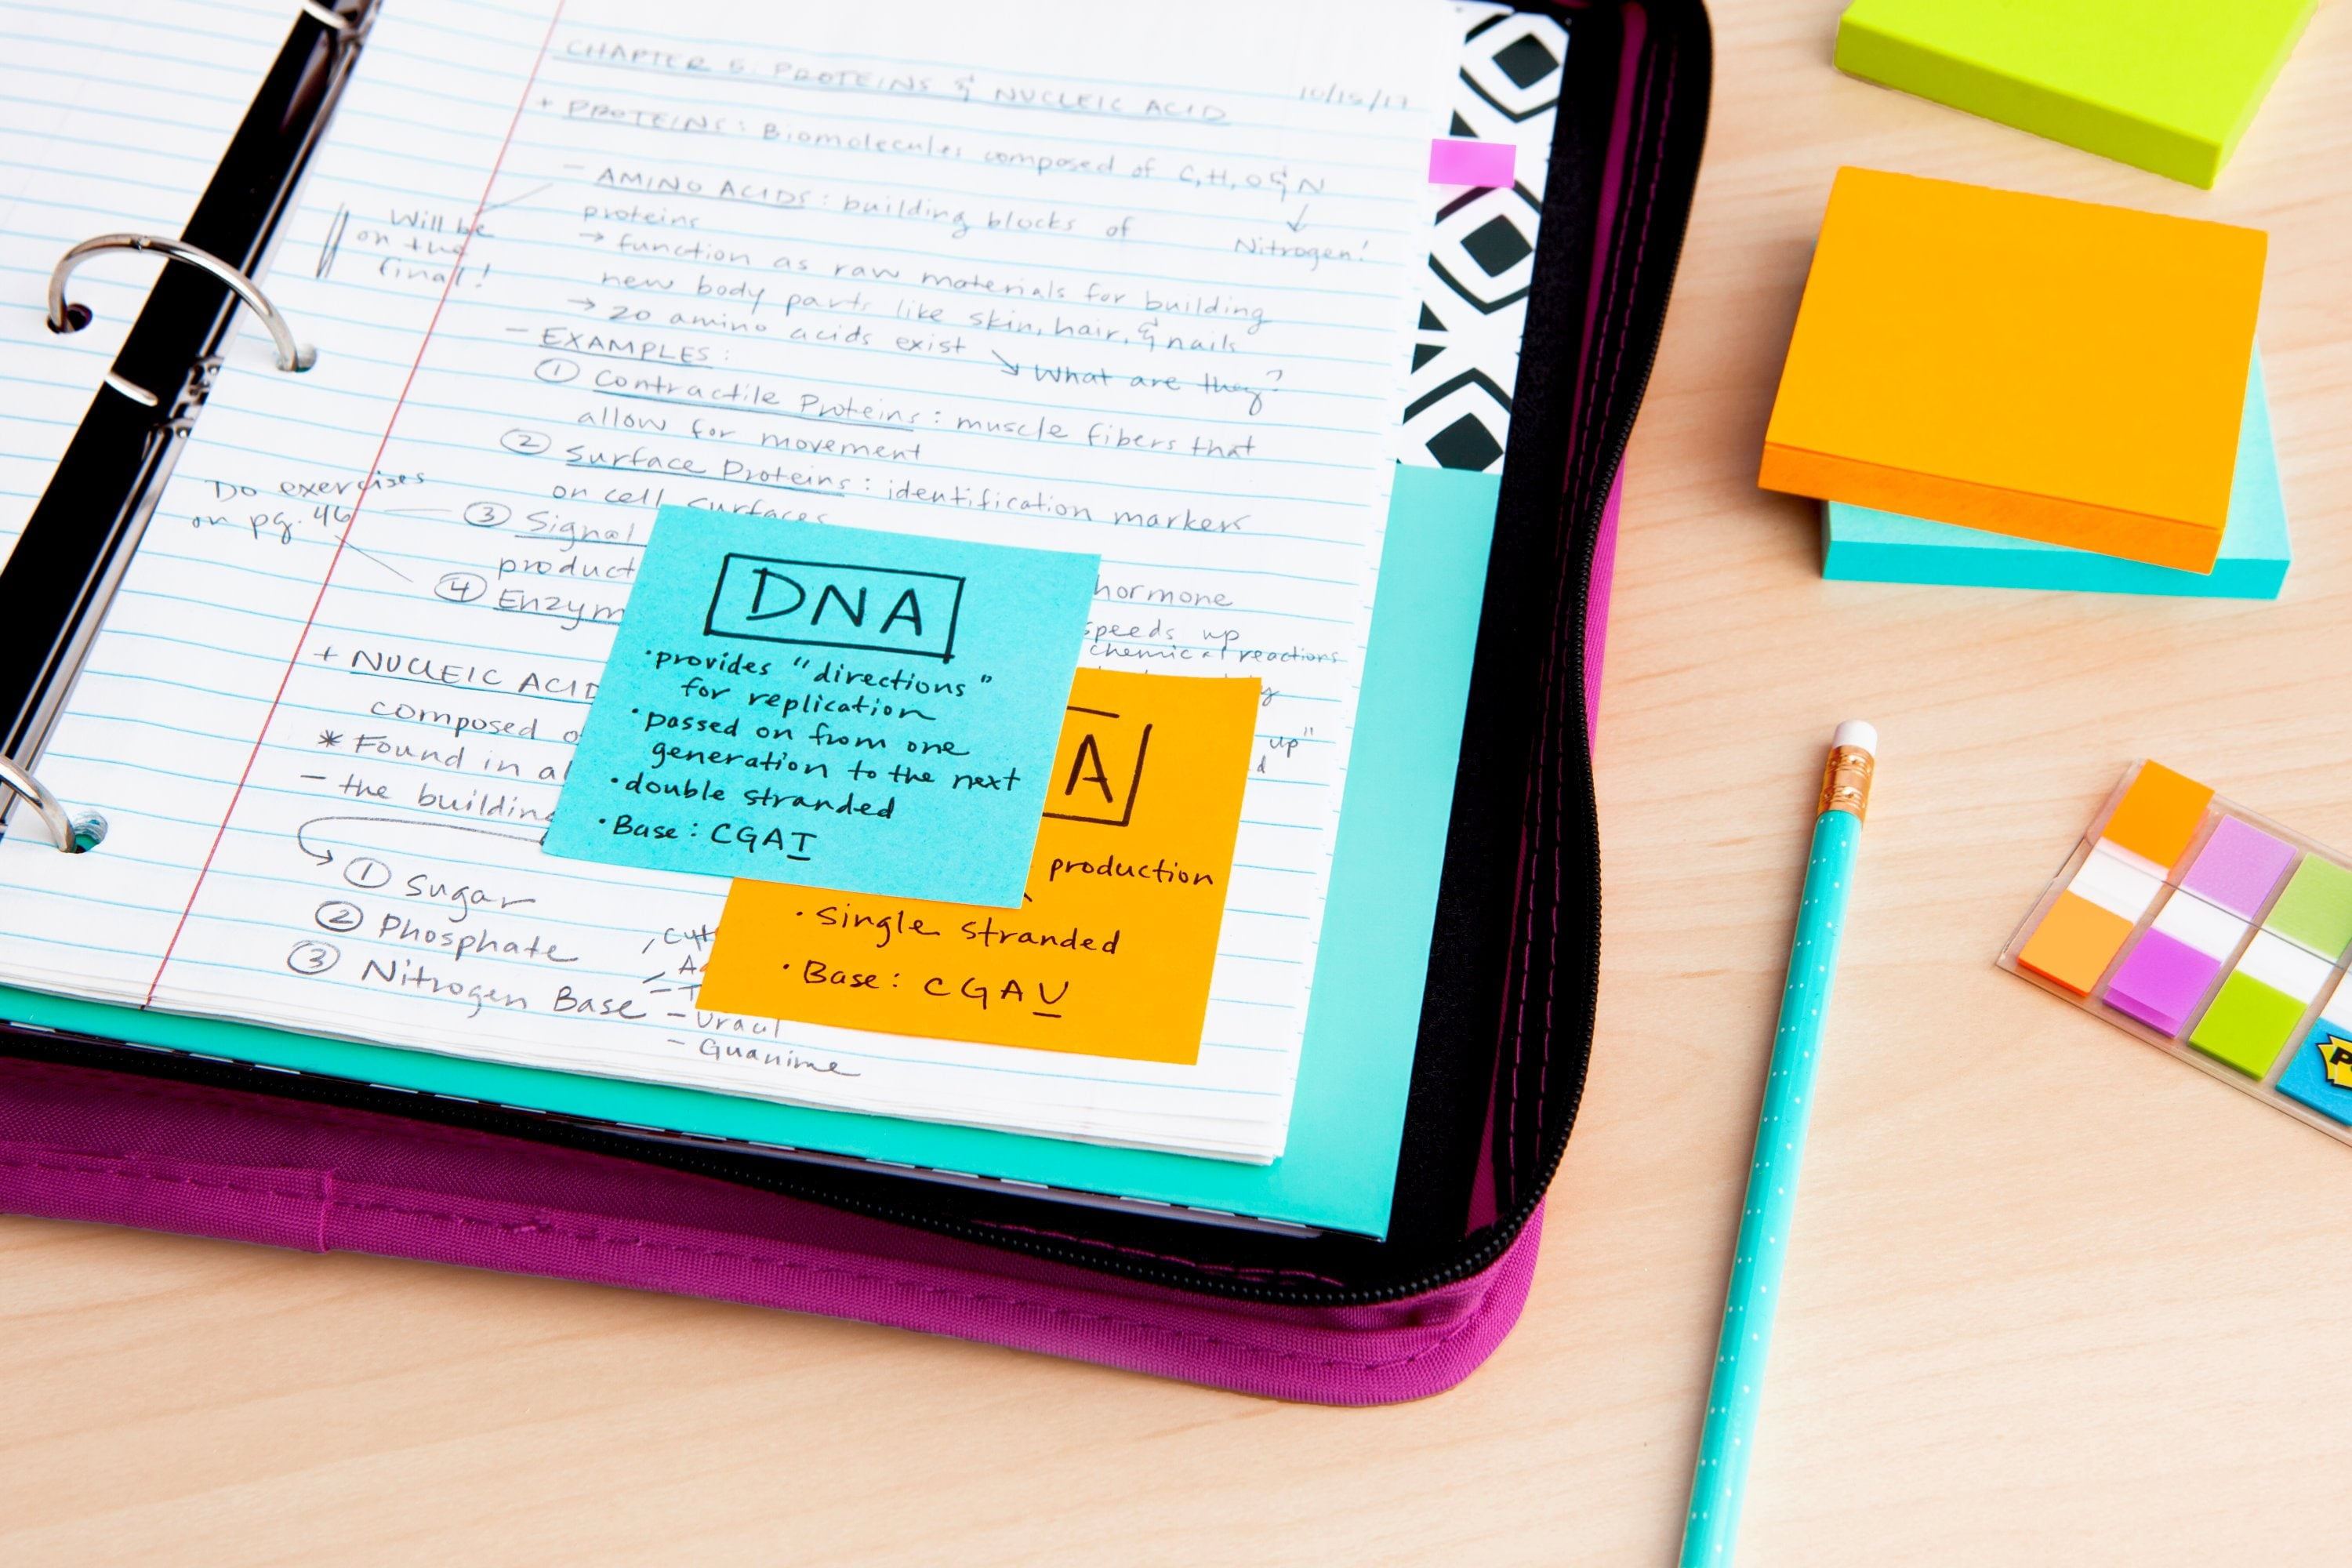 CHAPTER 5: PROTEINS & NUCLEIC ACID
10/15/17
+ PROTEINS: Biomolecules composed of C, H, O & N
Nitrogen!
- AMINO ACIDS: building blocks of
proteins
→ function as raw materials for building
new body parts like skin, hair, & nails
→ 20 amino acids exist
What are they?
Will be
on the
final!
- EXAMPLES:
① Contractile Proteins: muscle fibers that
allow for movement
② Surface Proteins: identification markers
on cell surfaces
Do exercises
on pg. 46
③ Signal
product
hormone
④ Enzym
speeds up
chemical reactions
+ NUCLEIC ACID
composed o
up"
* Found in al
- the building
① Sugar
② Phosphate
③ Nitrogen Base
- Uracil
- Guanime
DNA
• provides "directions"
for replication
• passed on from one
generation to the next
• double stranded
• Base: CGAT
A
production
• Single stranded
• Base: CGAU